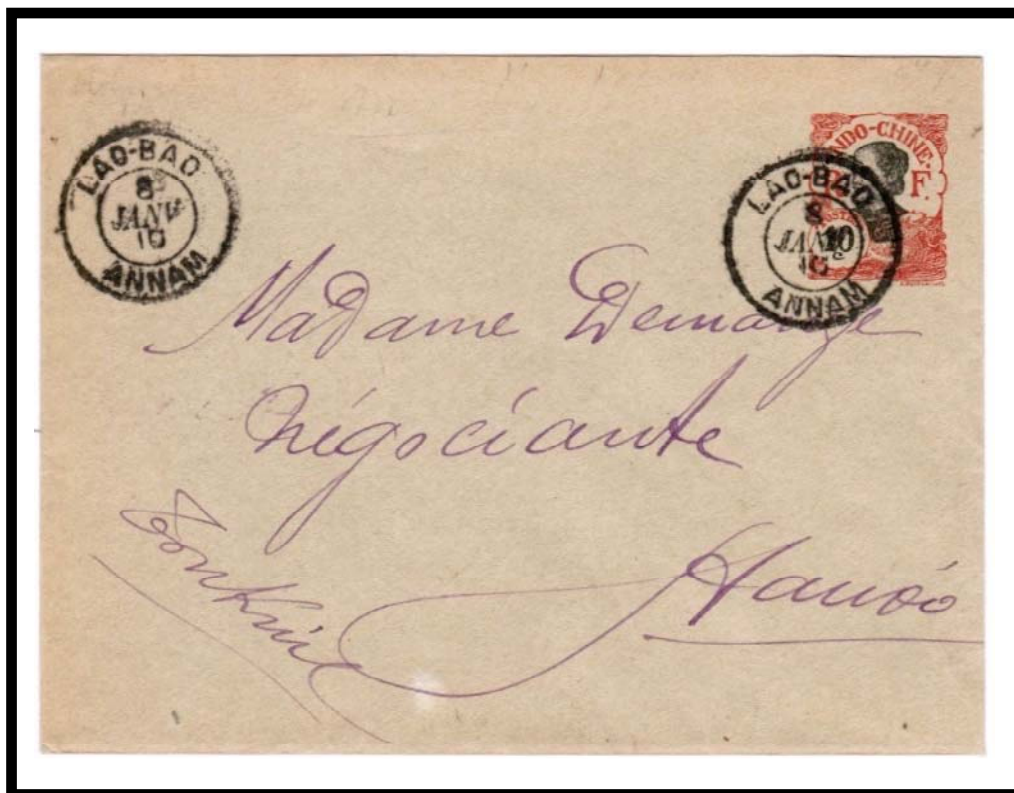 LAO-BAO
8
JANV
10
ANNAM
INDO-CHINE
R F.
POSTES
10
LAO-BAO
8
JANV
10
ANNAM
Madame Demange
Négociante
Hanoï
Tonkin